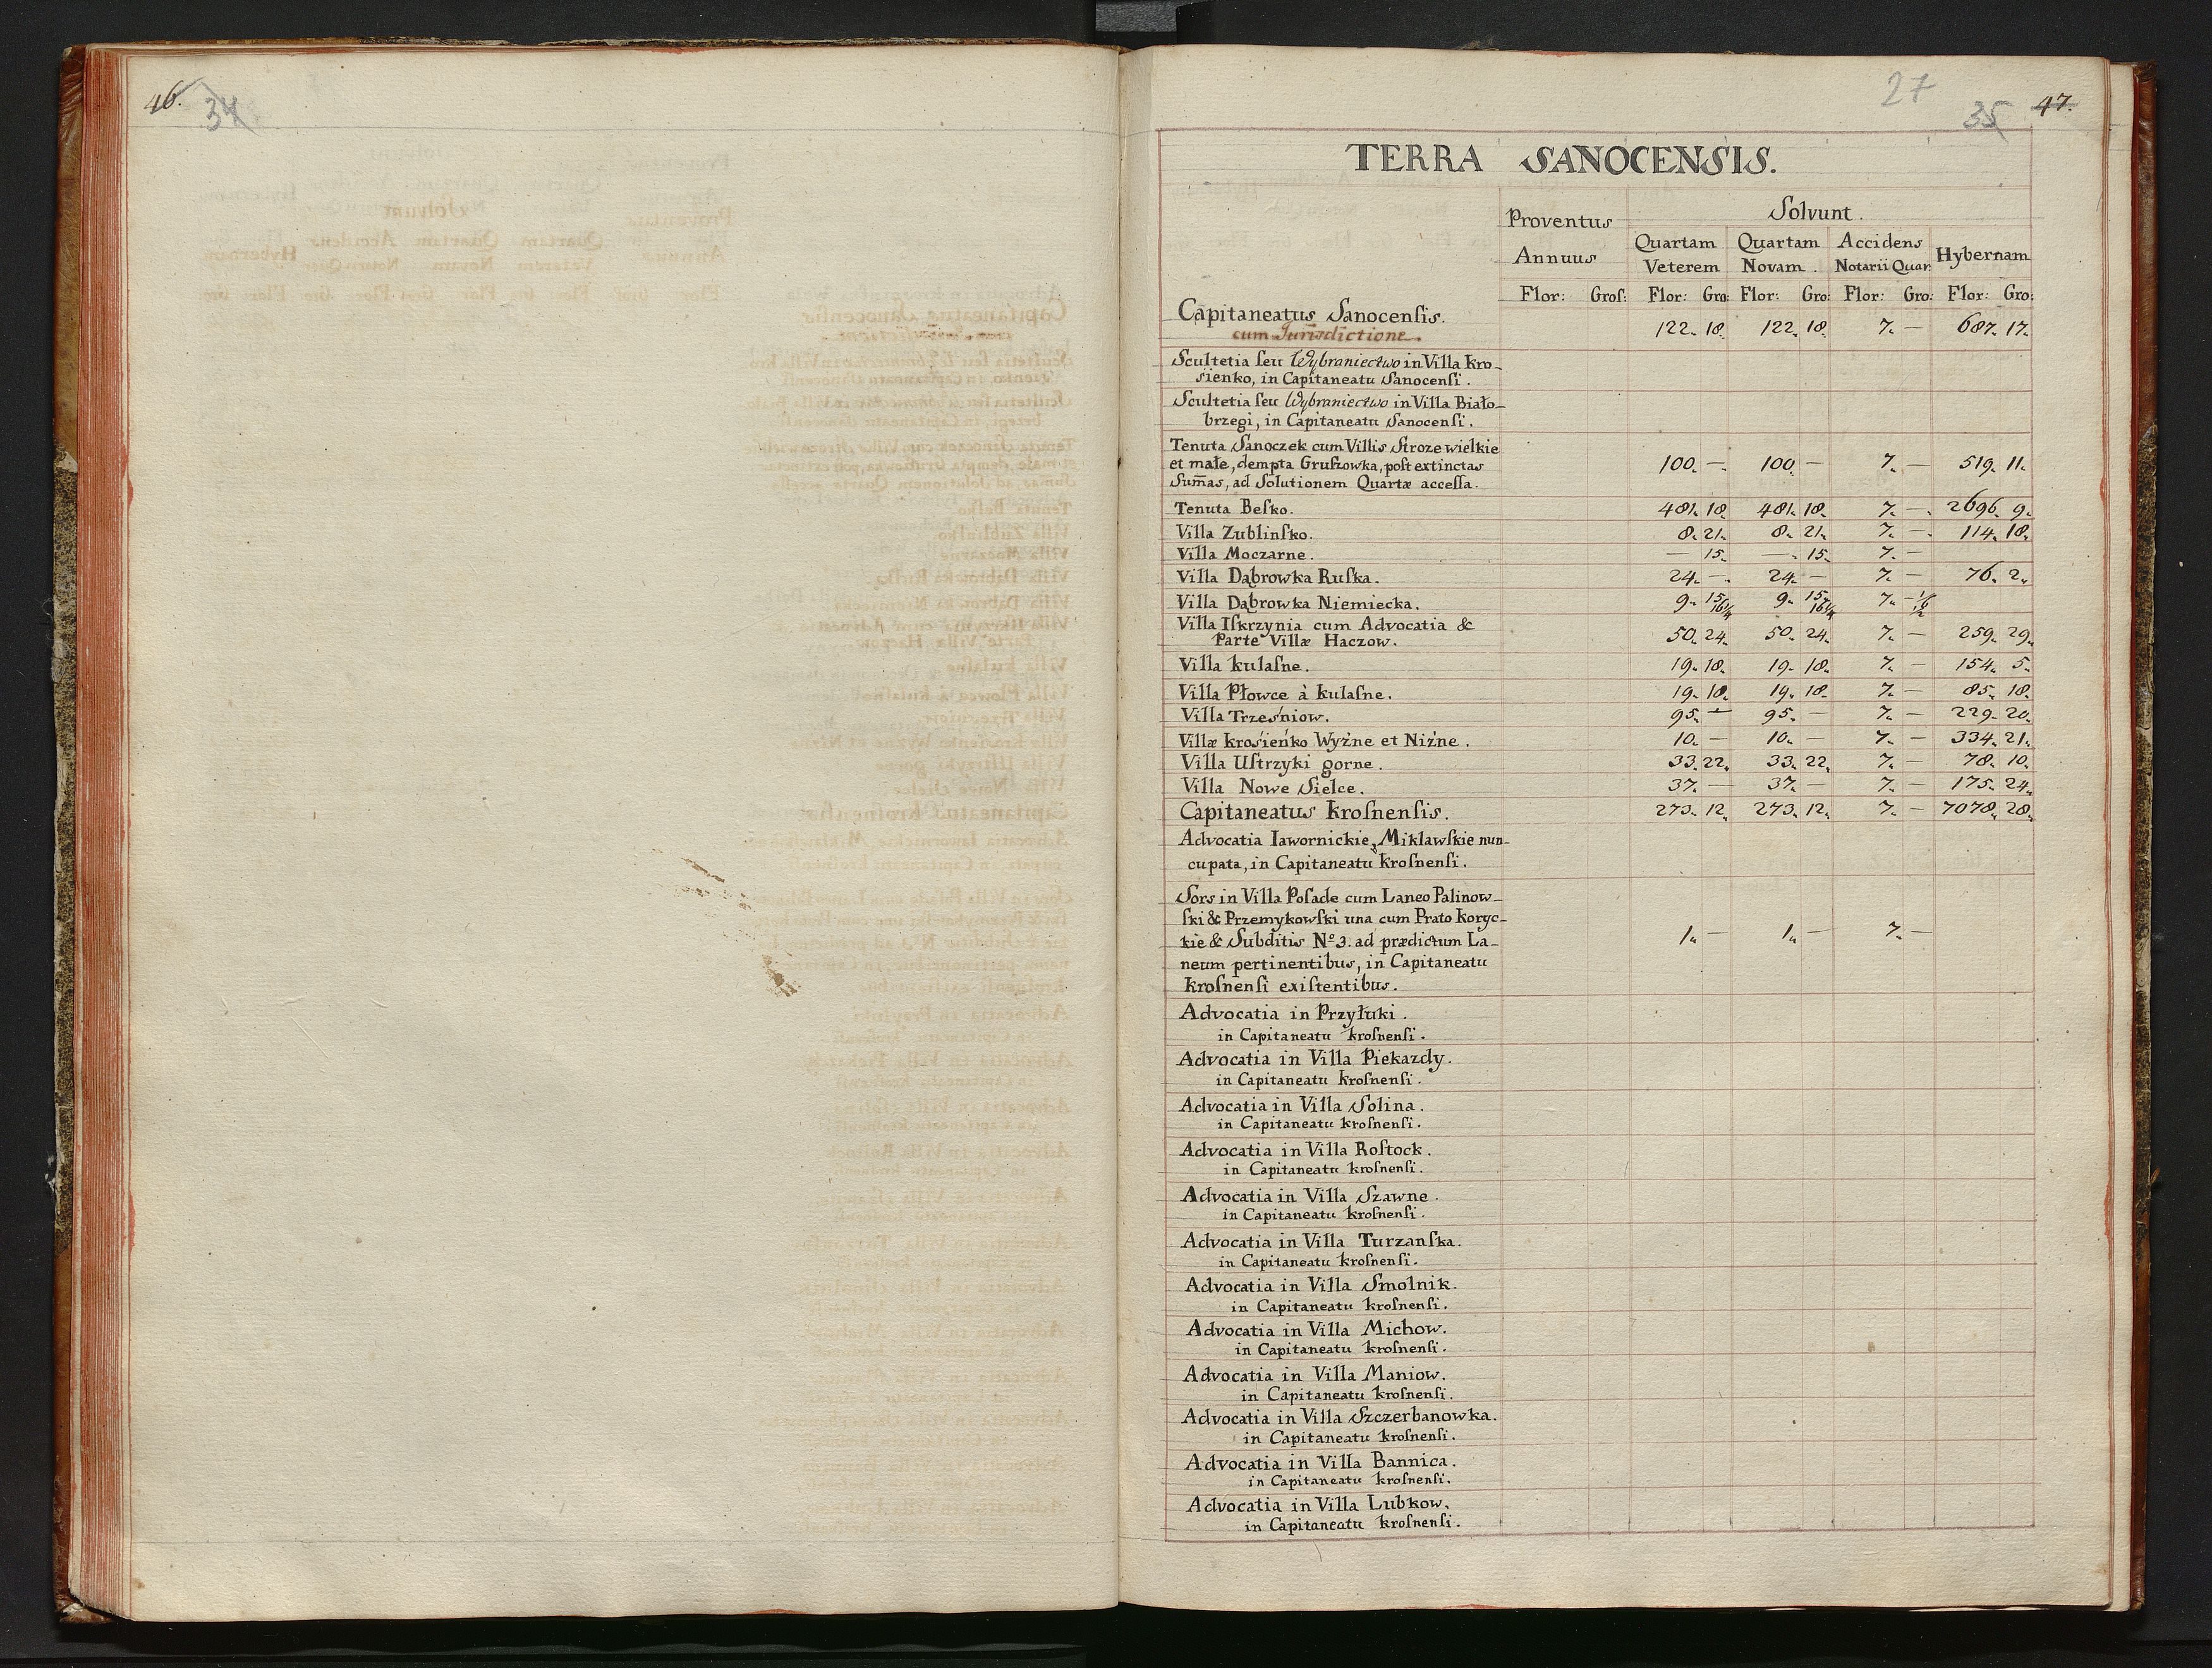 46. 34
27 35 47.
TERRA SANOCENSIS.
Proventus Annuus
Solvunt.
Quartam Veterem
Quartam Novam.
Accidens Notarii Quar:
Hybernam
Flor: Groſ: Flor: Gro: Flor: Gro: Flor: Gro: Flor: Gro:
Capitaneatus Sanocenſis.
cum Jurisdictione. 122. 18. 122. 18. 7. — 687. 17.
Scultetia ſeu Wybraniectwo in Villa Kro-
sienko, in Capitaneatu Sanocenſi.
Scultetia ſeu Wybraniectwo in Villa Biało-
brzegi, in Capitaneatu Sanocenſi.
Tenuta Sanoczek cum Villis Stroze wielkie
et małe, dempta Gruſzowka, poſt extinctas 100. — 100. — 7. — 519. 11.
Sum̄as, ad Solutionem Quartæ acceſſa.
Tenuta Beſko. 481. 18. 481. 18. 7. — 2696. 9.
Villa Zublinſko. 8. 21. 8. 21. 7. — 114. 18.
Villa Moczarne. — 15. — 15. 7. —
Villa Dąbrowka Ruſka. 24. — 24. — 7. — 76. 2.
Villa Dąbrowka Niemiecka. 9. 15 9. 15 7. —
Villa Iſkrzynia cum Advocatia &
Parte Villæ Haczow. 50. 24. 50. 24. 7. — 259. 29.
Villa Kulaſne. 19. 18. 19. 18. 7. — 154. 5.
Villa Płowce à Kulaſne. 19. 18. 19. 18. 7. — 85. 18.
Villa Trześniow. 95. — 95. — 7. — 229. 20.
Villæ Krosieńko Wyżne et Niżne. 10. — 10. — 7. — 334. 21.
Villa Uſtrzyki gorne. 33. 22. 33. 22. 7. — 78. 10.
Villa Nowe Sielce. 37. — 37. — 7. — 175. 24.
Capitaneatus Kroſnenſis. 273. 12. 273. 12. 7. — 7078. 28.
Advocatia Iawornickie, Miklawſkie nun-
cupata, in Capitaneatu Kroſnenſi.
Sors in Villa Poſade cum Laneo Palinow-
ſki & Przemykowſki una cum Prato Koryc-
kie & Subditis Nº 3. ad prædictum La- 1. — 1. — 7. —
neum pertinentibus, in Capitaneatu
Kroſnenſi exiſtentibus.
Advocatia in Przyłuki.
in Capitaneatu Kroſnenſi.
Advocatia in Villa Piekazdy.
in Capitaneatu Kroſnenſi.
Advocatia in Villa Solina.
in Capitaneatu Kroſnenſi.
Advocatia in Villa Roſtock.
in Capitaneatu Kroſnenſi.
Advocatia in Villa Szawne.
in Capitaneatu Kroſnenſi.
Advocatia in Villa Turzanſka.
in Capitaneatu Kroſnenſi.
Advocatia in Villa Smolnik.
in Capitaneatu Kroſnenſi.
Advocatia in Villa Michow.
in Capitaneatu Kroſnenſi.
Advocatia in Villa Maniow.
in Capitaneatu Kroſnenſi.
Advocatia in Villa Szczerbanowka.
in Capitaneatu Kroſnenſi.
Advocatia in Villa Bannica.
in Capitaneatu Kroſnenſi.
Advocatia in Villa Lubkow.
in Capitaneatu Kroſnenſi.